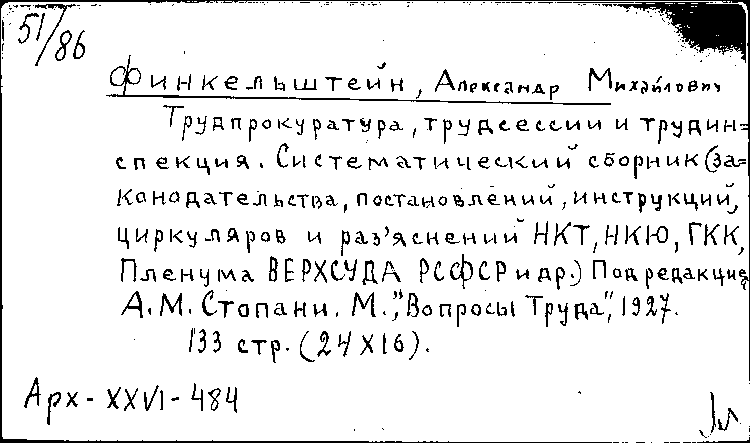 51/86
Финкельштейн, Александр Михайлович
Трудпрокуратура, трудсессии и трудин=
спекция. Систематический сборник (за=
конодательства, постановлений, инструкций,
циркуляров и раз'яснений НКТ, НКЮ, ГКК,
Пленума ВЕРХСУДА РСФСР и др.) Под редакцией
А.М. Стопани. М., "Вопросы Труда", 1927.
133 стр. (24х16).
Арх - XXVI - 484